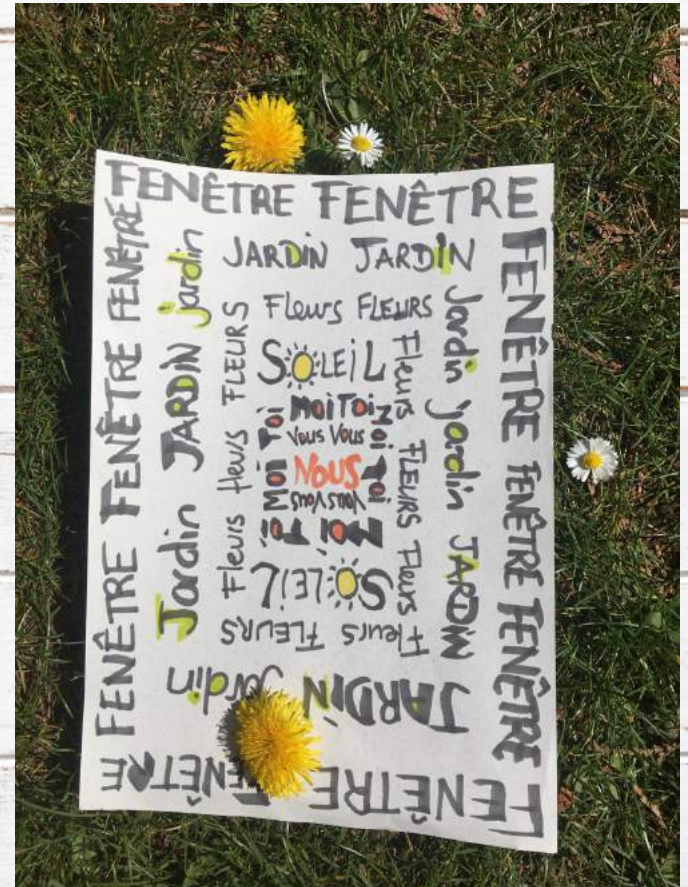 FENÊTRE FENÊTRE
FENÊTRE FENÊTRE FENÊTRE
FENÊTRE FENÊTRE
FENÊTRE FENÊTRE FENÊTRE
JARDiN JARDiN
Jardin jardin JARDiN
JARDiN Jardin
Jardin JARDiN jardin
Fleurs FLEURS
Fleurs FLEURS Fleurs
Fleurs FLEURS
Fleurs fleurs FLEURS
SOLEiL
Moi Toi
Moi Toi
Vous Vous
NOUS
Vous Vous
Moi Toi
Moi Toi
SOLEiL